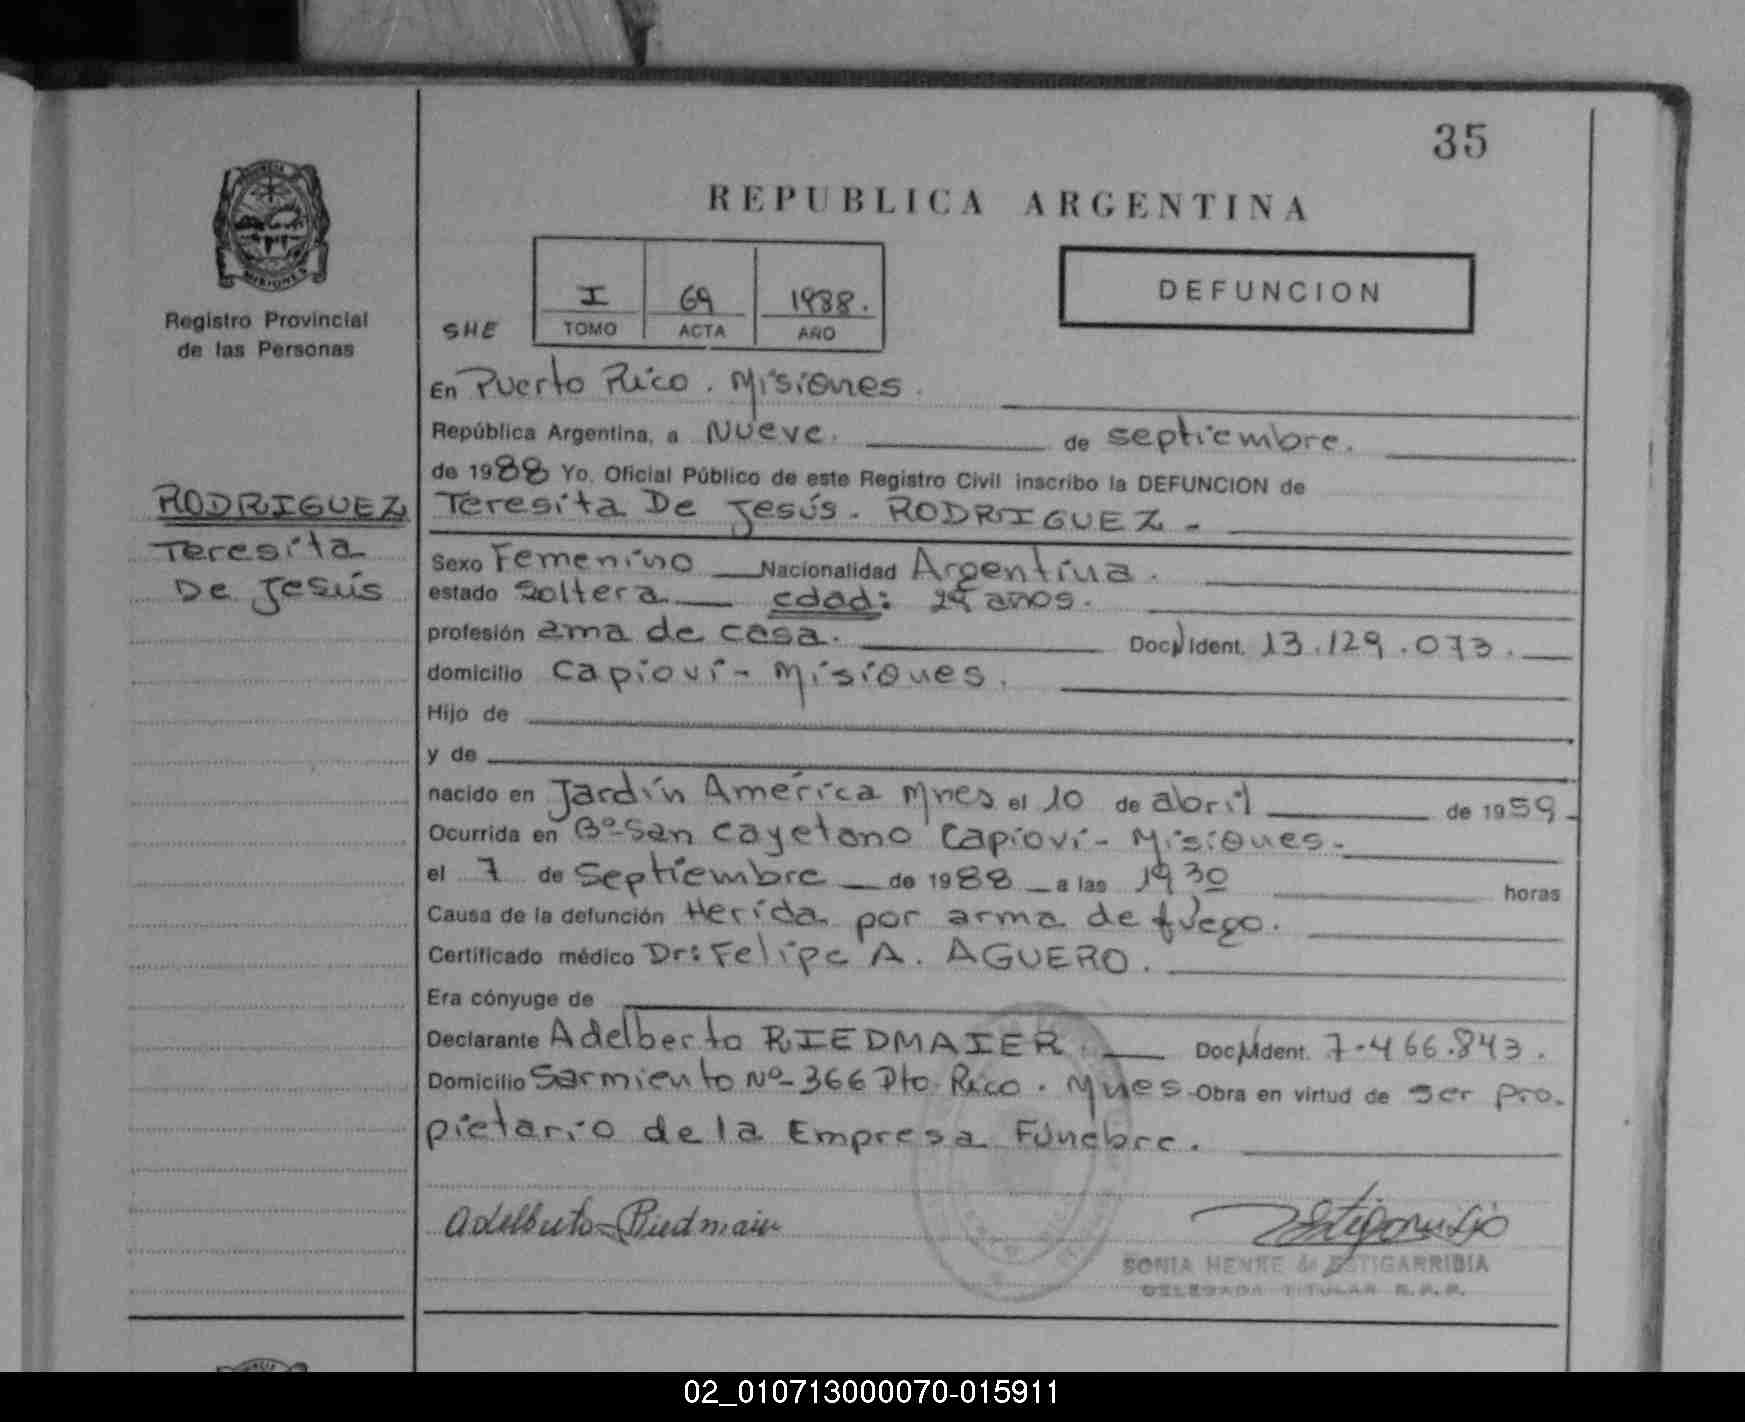 35
REPUBLICA ARGENTINA
I 69 1988.
TOMO ACTA AÑO
DEFUNCION
SHE
MISIONES
Registro Provincial
de las Personas
RODRIGUEZ
Teresita
De Jesús
En Puerto Rico. Misiones.
República Argentina, a Nueve. de septiembre.
de 1988 Yo, Oficial Público de este Registro Civil inscribo la DEFUNCION de
Teresita De Jesús. RODRIGUEZ.
Sexo Femenino Nacionalidad Argentina.
estado Soltera edad: 29 años.
profesión ama de casa. Doc. Ident. 13.129.073.
domicilio Capioví - Misiones.
Hijo de
y de
nacido en Jardín América Mnes el 10 de abril de 1959
Ocurrida en Bº San Cayetano Capioví - Misiones.
el 7 de Septiembre de 1988 a las 1930 horas
Causa de la defunción Herida por arma de fuego.
Certificado médico Dr: Felipe A. AGUERO.
Era cónyuge de
Declarante Adelberto RIEDMAIER. Doc. Ident. 7.466.843.
Domicilio Sarmiento Nº 366 Pto. Rico. Mnes. Obra en virtud de ser pro-
pietario de la Empresa Fúnebre.
Adelberto Riedmaier
SONIA HENKE de ESTIGARRIBIA
DELEGADA TITULAR R.P.P.
02_010713000070-015911